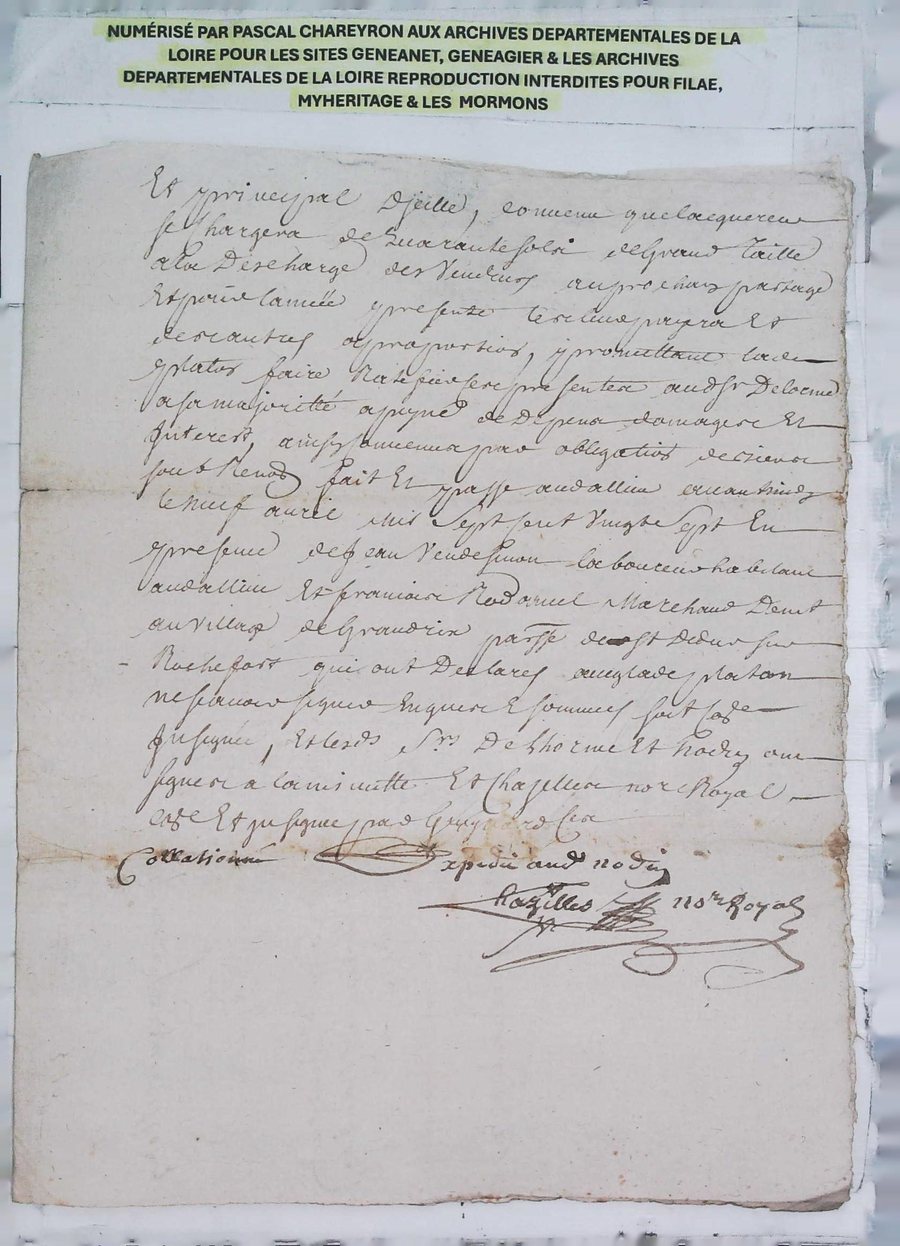 NUMÉRISÉ PAR PASCAL CHAREYRON AUX ARCHIVES DEPARTEMENTALES DE LA
LOIRE POUR LES SITES GENEANET, GENEAGIER & LES ARCHIVES
DEPARTEMENTALES DE LA LOIRE REPRODUCTION INTERDITES POUR FILAE,
MYHERITAGE & LES MORMONS
Et principal convenu que lacquereur
se chargera de quarante sols de Grand Taille
a la Descharge des Vendeurs au prochain partage
Et pour lannée presente Et
des autres a proportion, promettant
platon faire presentes aud Sr Delorme
a sa majoritté a peyne de Depens domages Et
Interest, ainsy convenu par obligation
soub Renon Fait Et passé aud allieu avant midy
le neuf avril mil Sept cent Vingt Sept En
presence de Jean laboureur habitant
aud allieu Et francois Marchand Demt
au village de Grandris parsse de St Didier sur
Rochefort qui ont Declarés platon
ne scavoir signer Enquis E sommés
Et lesds Srs Delhorme Et Nodin ont
signés a la minutte Et Chazelles nore Royal
Et
Collationné Expedié aud nodin
Chazelles nore Royal